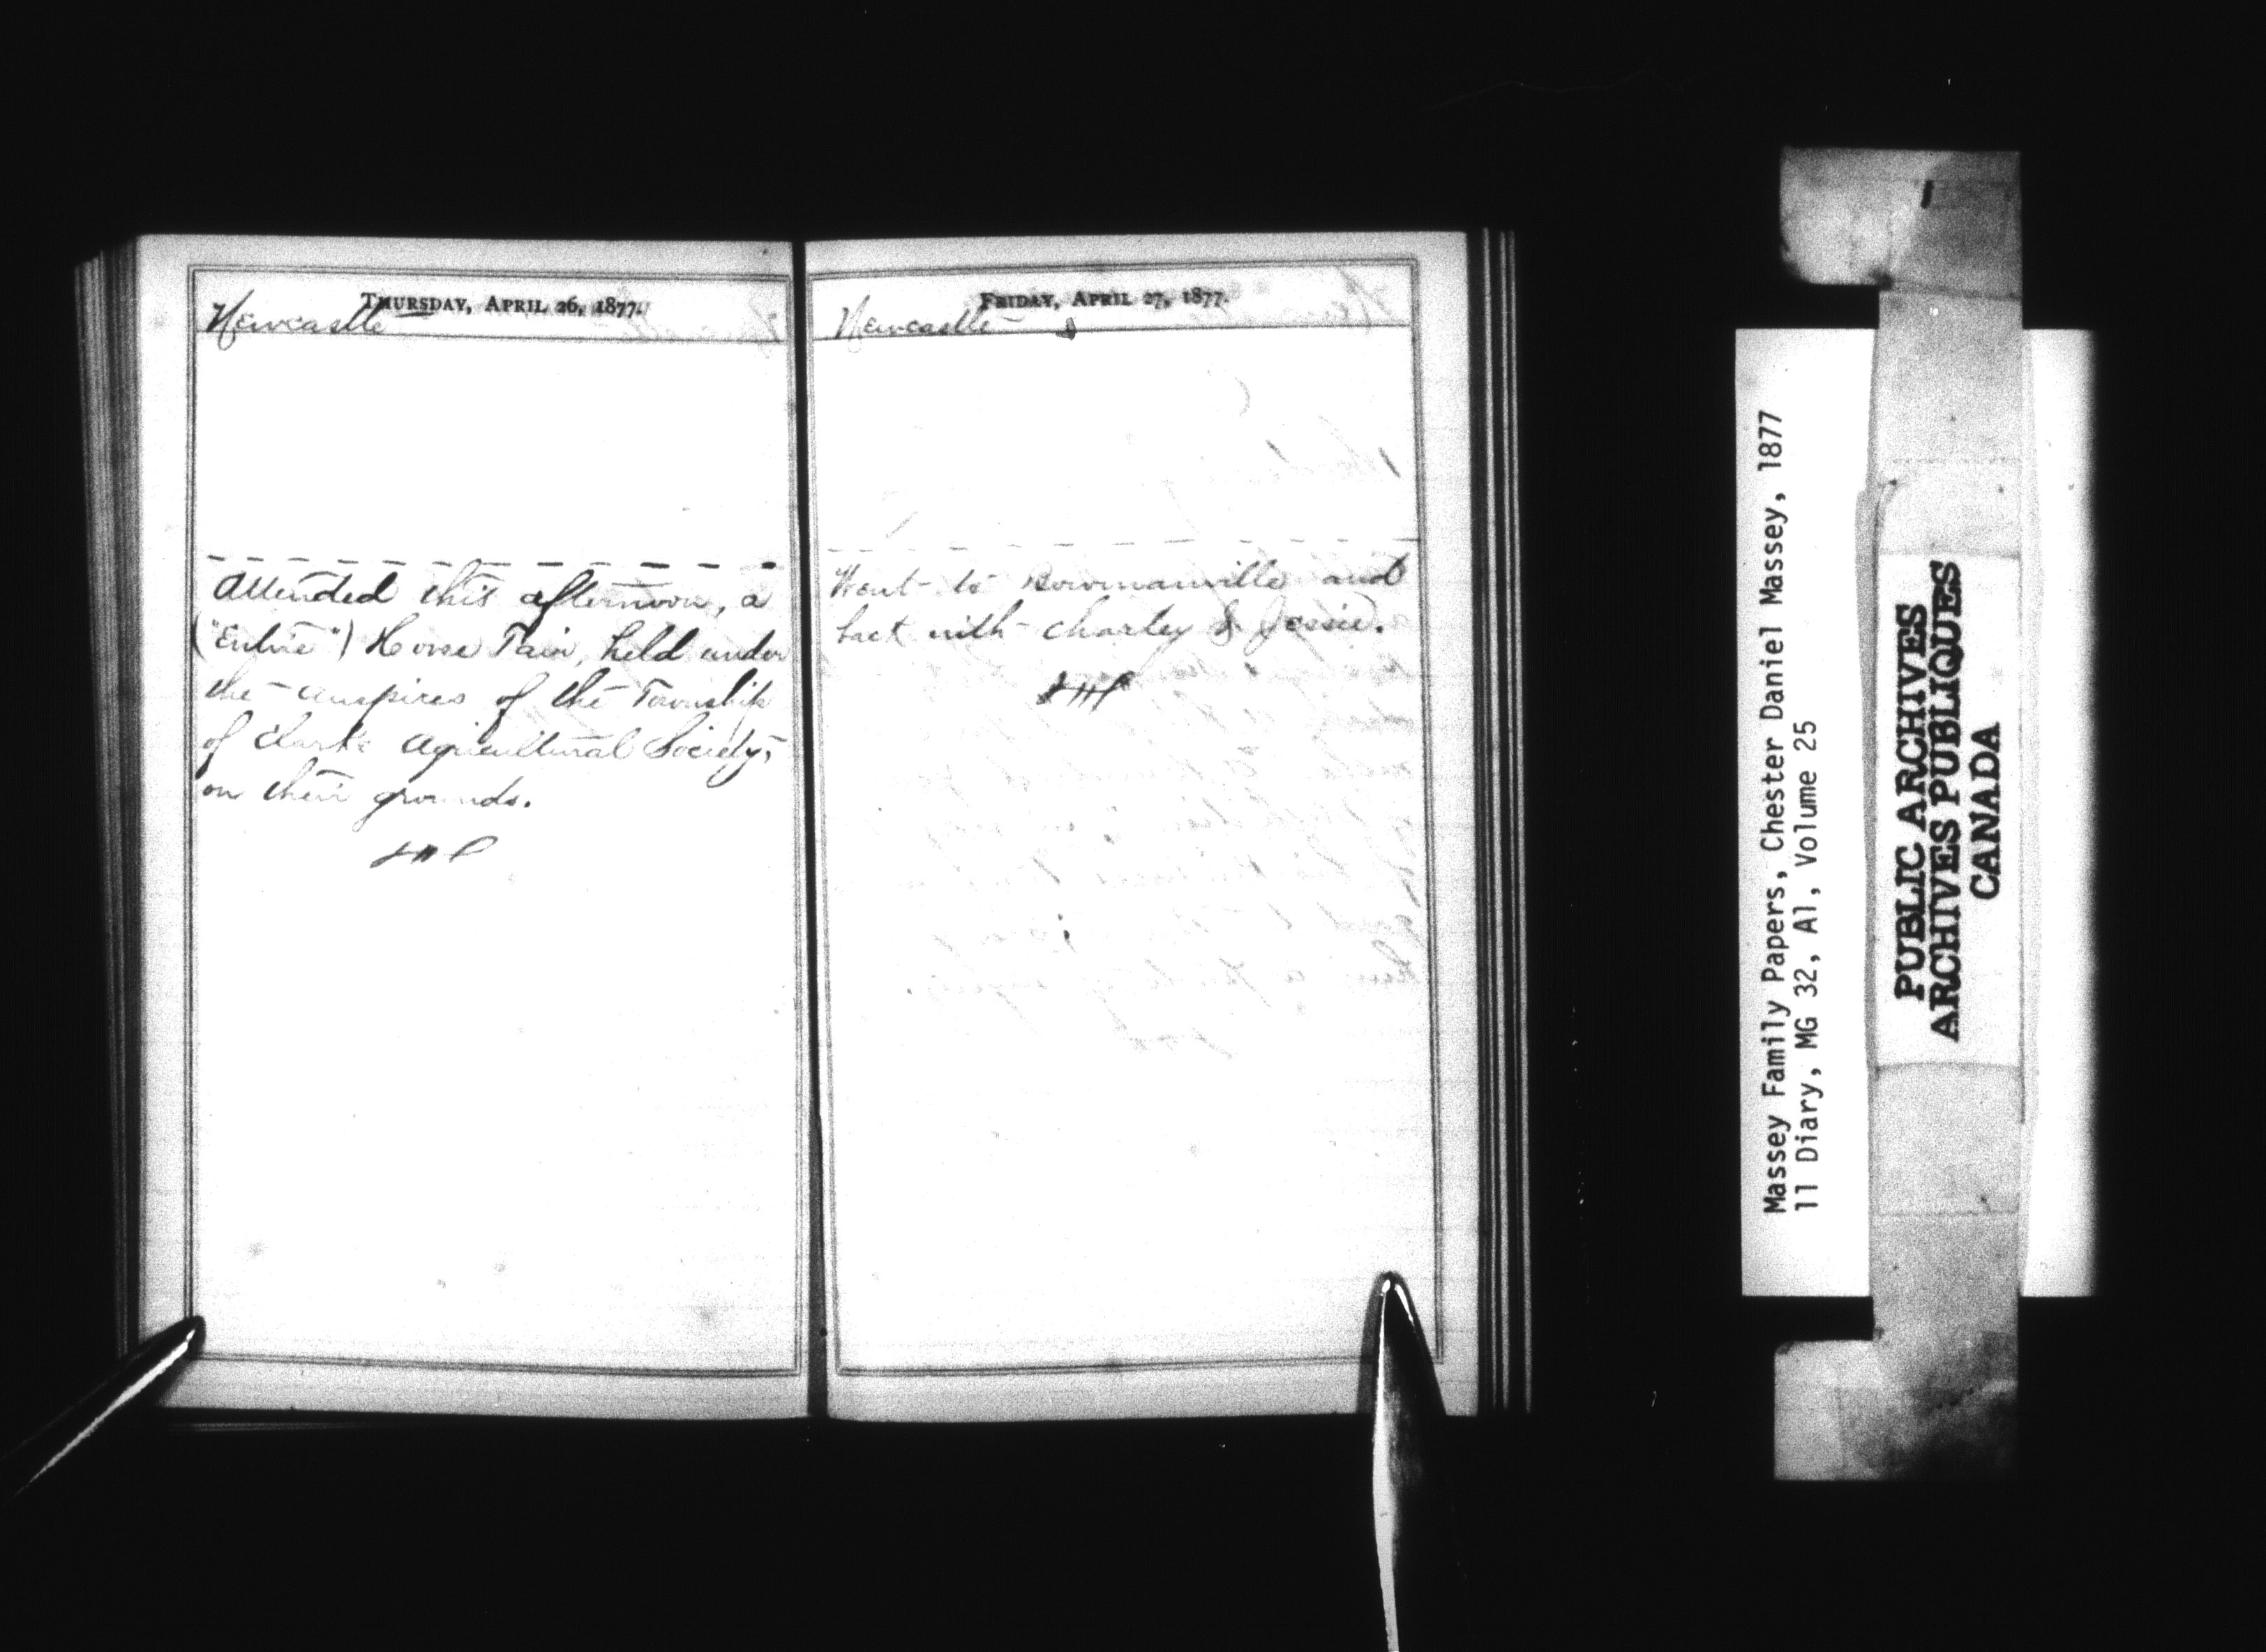 THURSDAY, APRIL 26, 1877.
Newcastle
Attended this afternoon, a
("Entire") Horse Fair, held under
the auspices of the Township
of Clarke Agricultural Society,
on their grounds.
FRIDAY, APRIL 27, 1877.
Newcastle
Went to Bowmanville and
back with Charley & Jessie.
Massey Family Papers, Chester Daniel Massey, 1877
11 Diary, MG 32, A1, Volume 25
PUBLIC ARCHIVES
ARCHIVES PUBLIQUES
CANADA